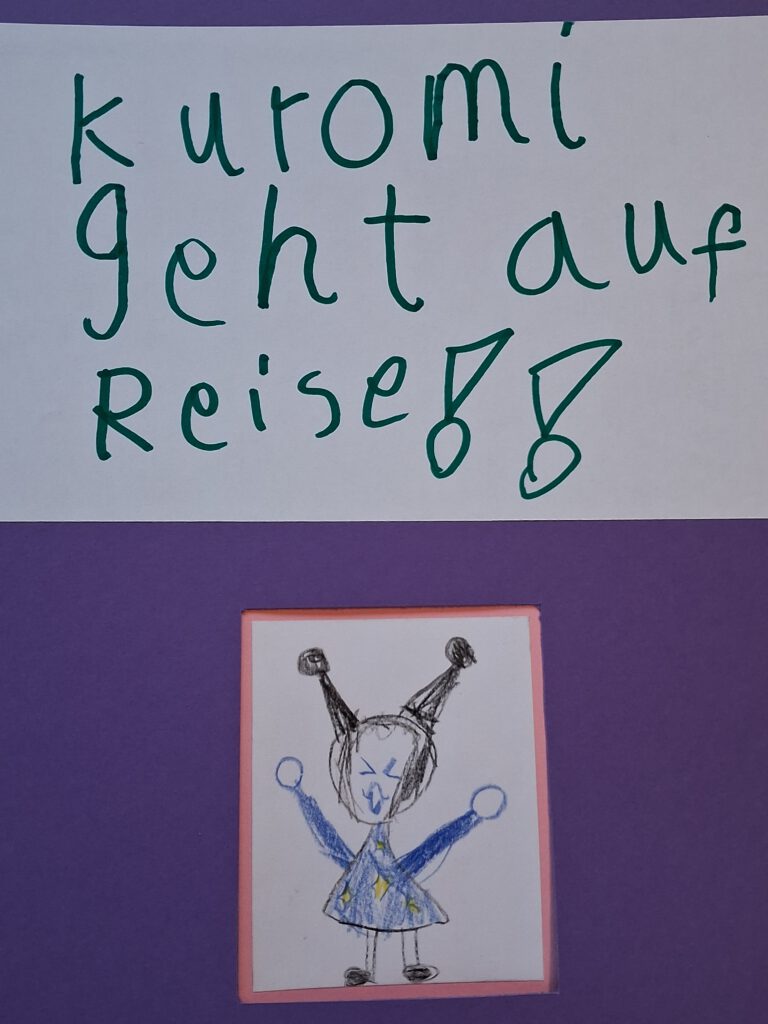 kuromi
geht auf
Reise!!